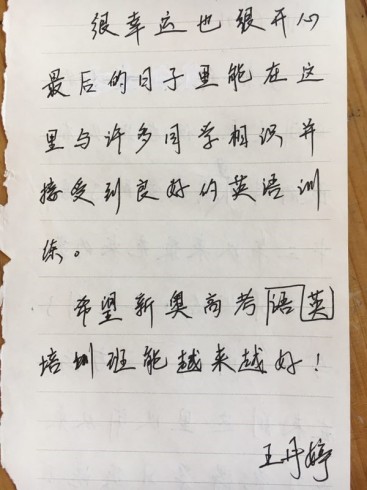 很幸运也很开心
最后的日子里能在这
里与许多同学相识并
接受到良好的英语训
练。
希望新奥高考语英
培训班能越来越好！
王丹婷